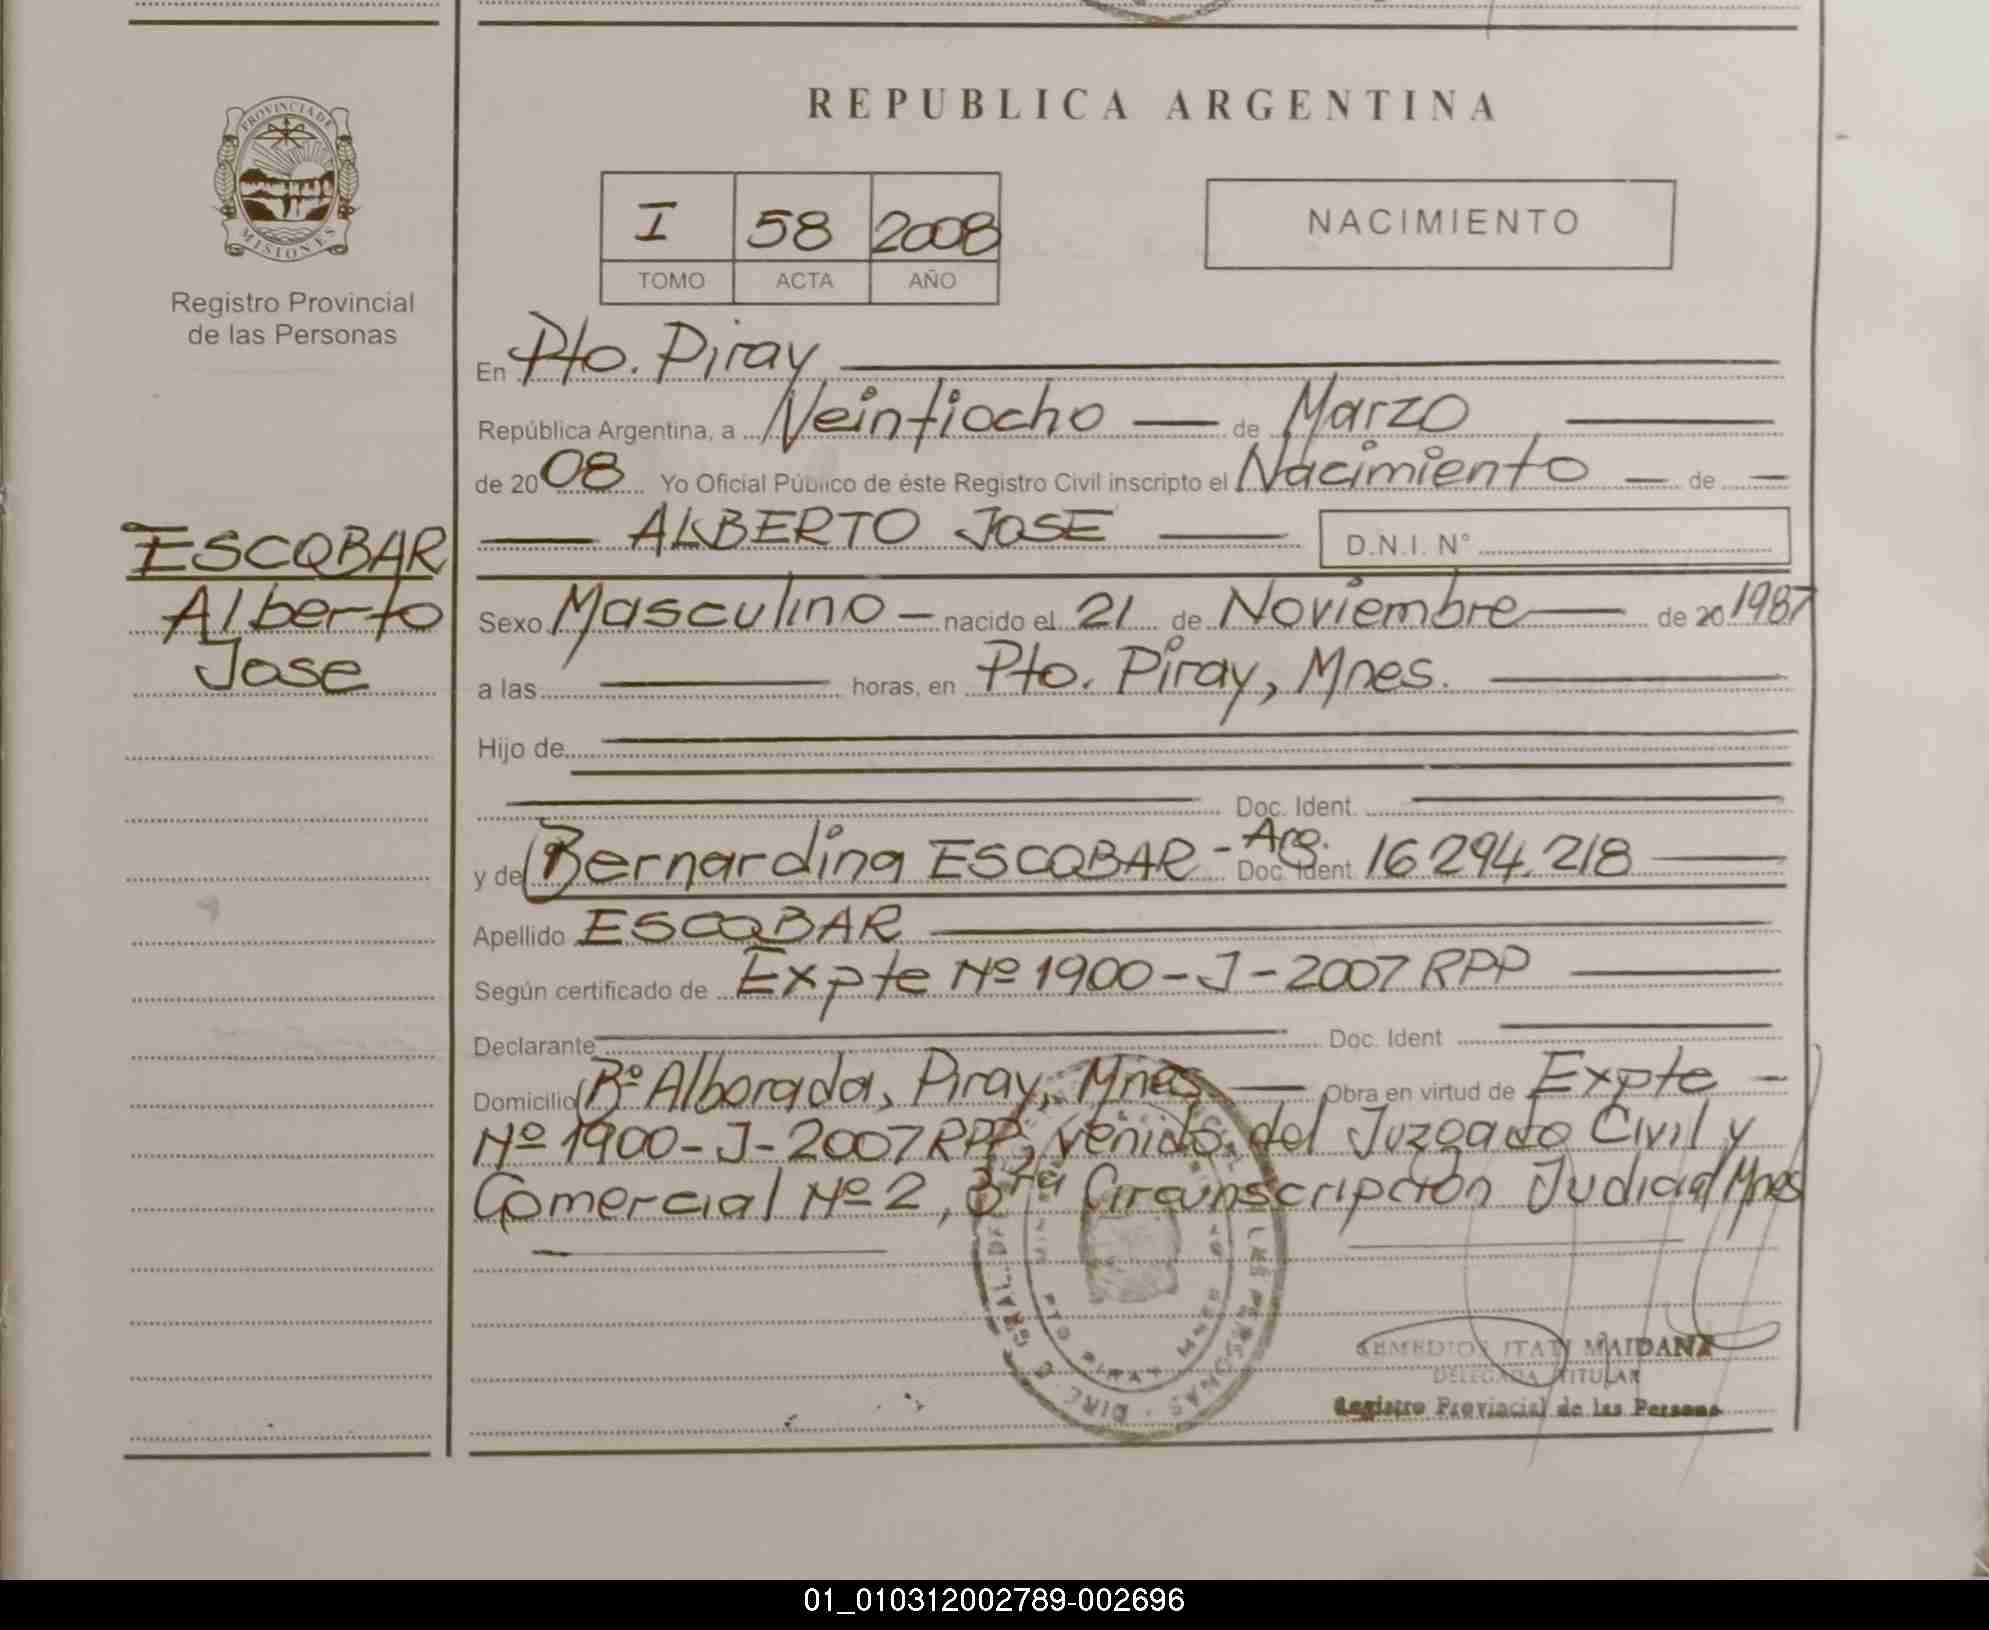 REPUBLICA ARGENTINA
PROVINCIA DE
MISIONES
Registro Provincial
de las Personas
I 58 2008
TOMO ACTA AÑO
NACIMIENTO
En Pto. Piray
República Argentina, a Veintiocho de Marzo
de 20 08 Yo Oficial Público de éste Registro Civil inscripto el Nacimiento de
ALBERTO JOSE D.N.I. N°
ESCOBAR
Alberto
Jose
Sexo Masculino nacido el 21 de Noviembre de 20 1987
a las horas, en Pto. Piray, Mnes.
Hijo de
Doc. Ident.
y de Bernardina ESCOBAR - Arg. Doc. Ident 16294.218
Apellido ESCOBAR
Según certificado de Expte Nº 1900-J-2007 RPP
Declarante Doc. Ident
Domicilio Bº Alborada, Piray, Mnes Obra en virtud de Expte
Nº 1900-J-2007 RPP, venido del Juzgado Civil y
Comercial Nº 2, 3ra Circunscripción Judicial Mnes
ITATI MAIDANA
DELEGADA TITULAR
Registro Provincial de las Persona
01_010312002789-002696